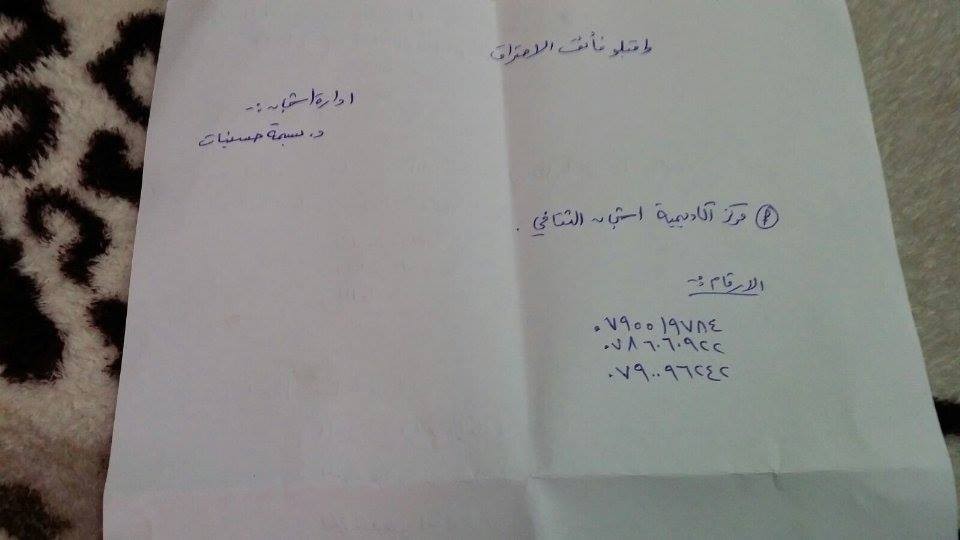 واقبلو فائق الاحترام
ادارة اشجان :-
د. بسمة حسينات
① مركز اكاديمية اشجان الثقافي .
الارقام :-
٠٧٩٥٥١٩٧٨٤
٠٧٨٦٠٦٠٩٢٢
٠٧٩٠٠٩٦٢٤٢